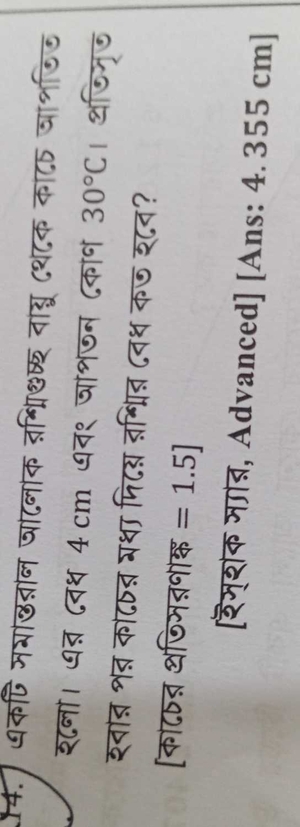 14. একটি সমান্তরাল আলোক রশ্মিগুচ্ছ বায়ু থেকে কাচে আপতিত
হলো। এর বেধ 4 cm এবং আপতন কোণ 30°C। প্রতিসৃত
হবার পর কাচের মধ্য দিয়ে রশ্মির বেধ কত হবে?
[কাচের প্রতিসরণাঙ্ক = 1.5]
[ইস্‌হাক স্যার, Advanced] [Ans: 4.355 cm]